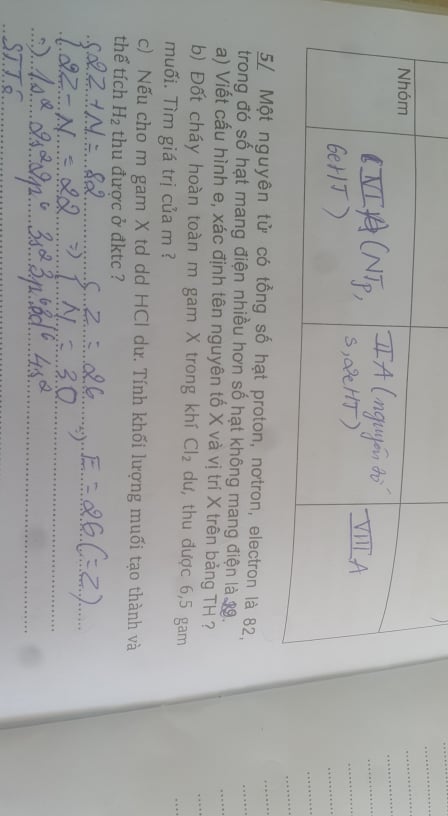 Nhóm
VIA (NTp,
6eHT)
IIA (nguyên tố
s, 2eHT)
VIIIA
5/ Một nguyên tử có tổng số hạt proton, nơtron, electron là 82,
trong đó số hạt mang điện nhiều hơn số hạt không mang điện là 22.
a) Viết cấu hình e, xác định tên nguyên tố X và vị trí X trên bảng TH ?
b) Đốt cháy hoàn toàn m gam X trong khí Cl₂ dư, thu được 6,5 gam
muối. Tìm giá trị của m ?
c) Nếu cho m gam X td dd HCl dư. Tính khối lượng muối tạo thành và
thể tích H₂ thu được ở đktc ?
{2Z+N=82 {Z=26
{2Z-N=22 => {N=30 => E=26(=Z)
=) 1s² 2s²2p⁶ 3s²3p⁶3d⁶ 4s²